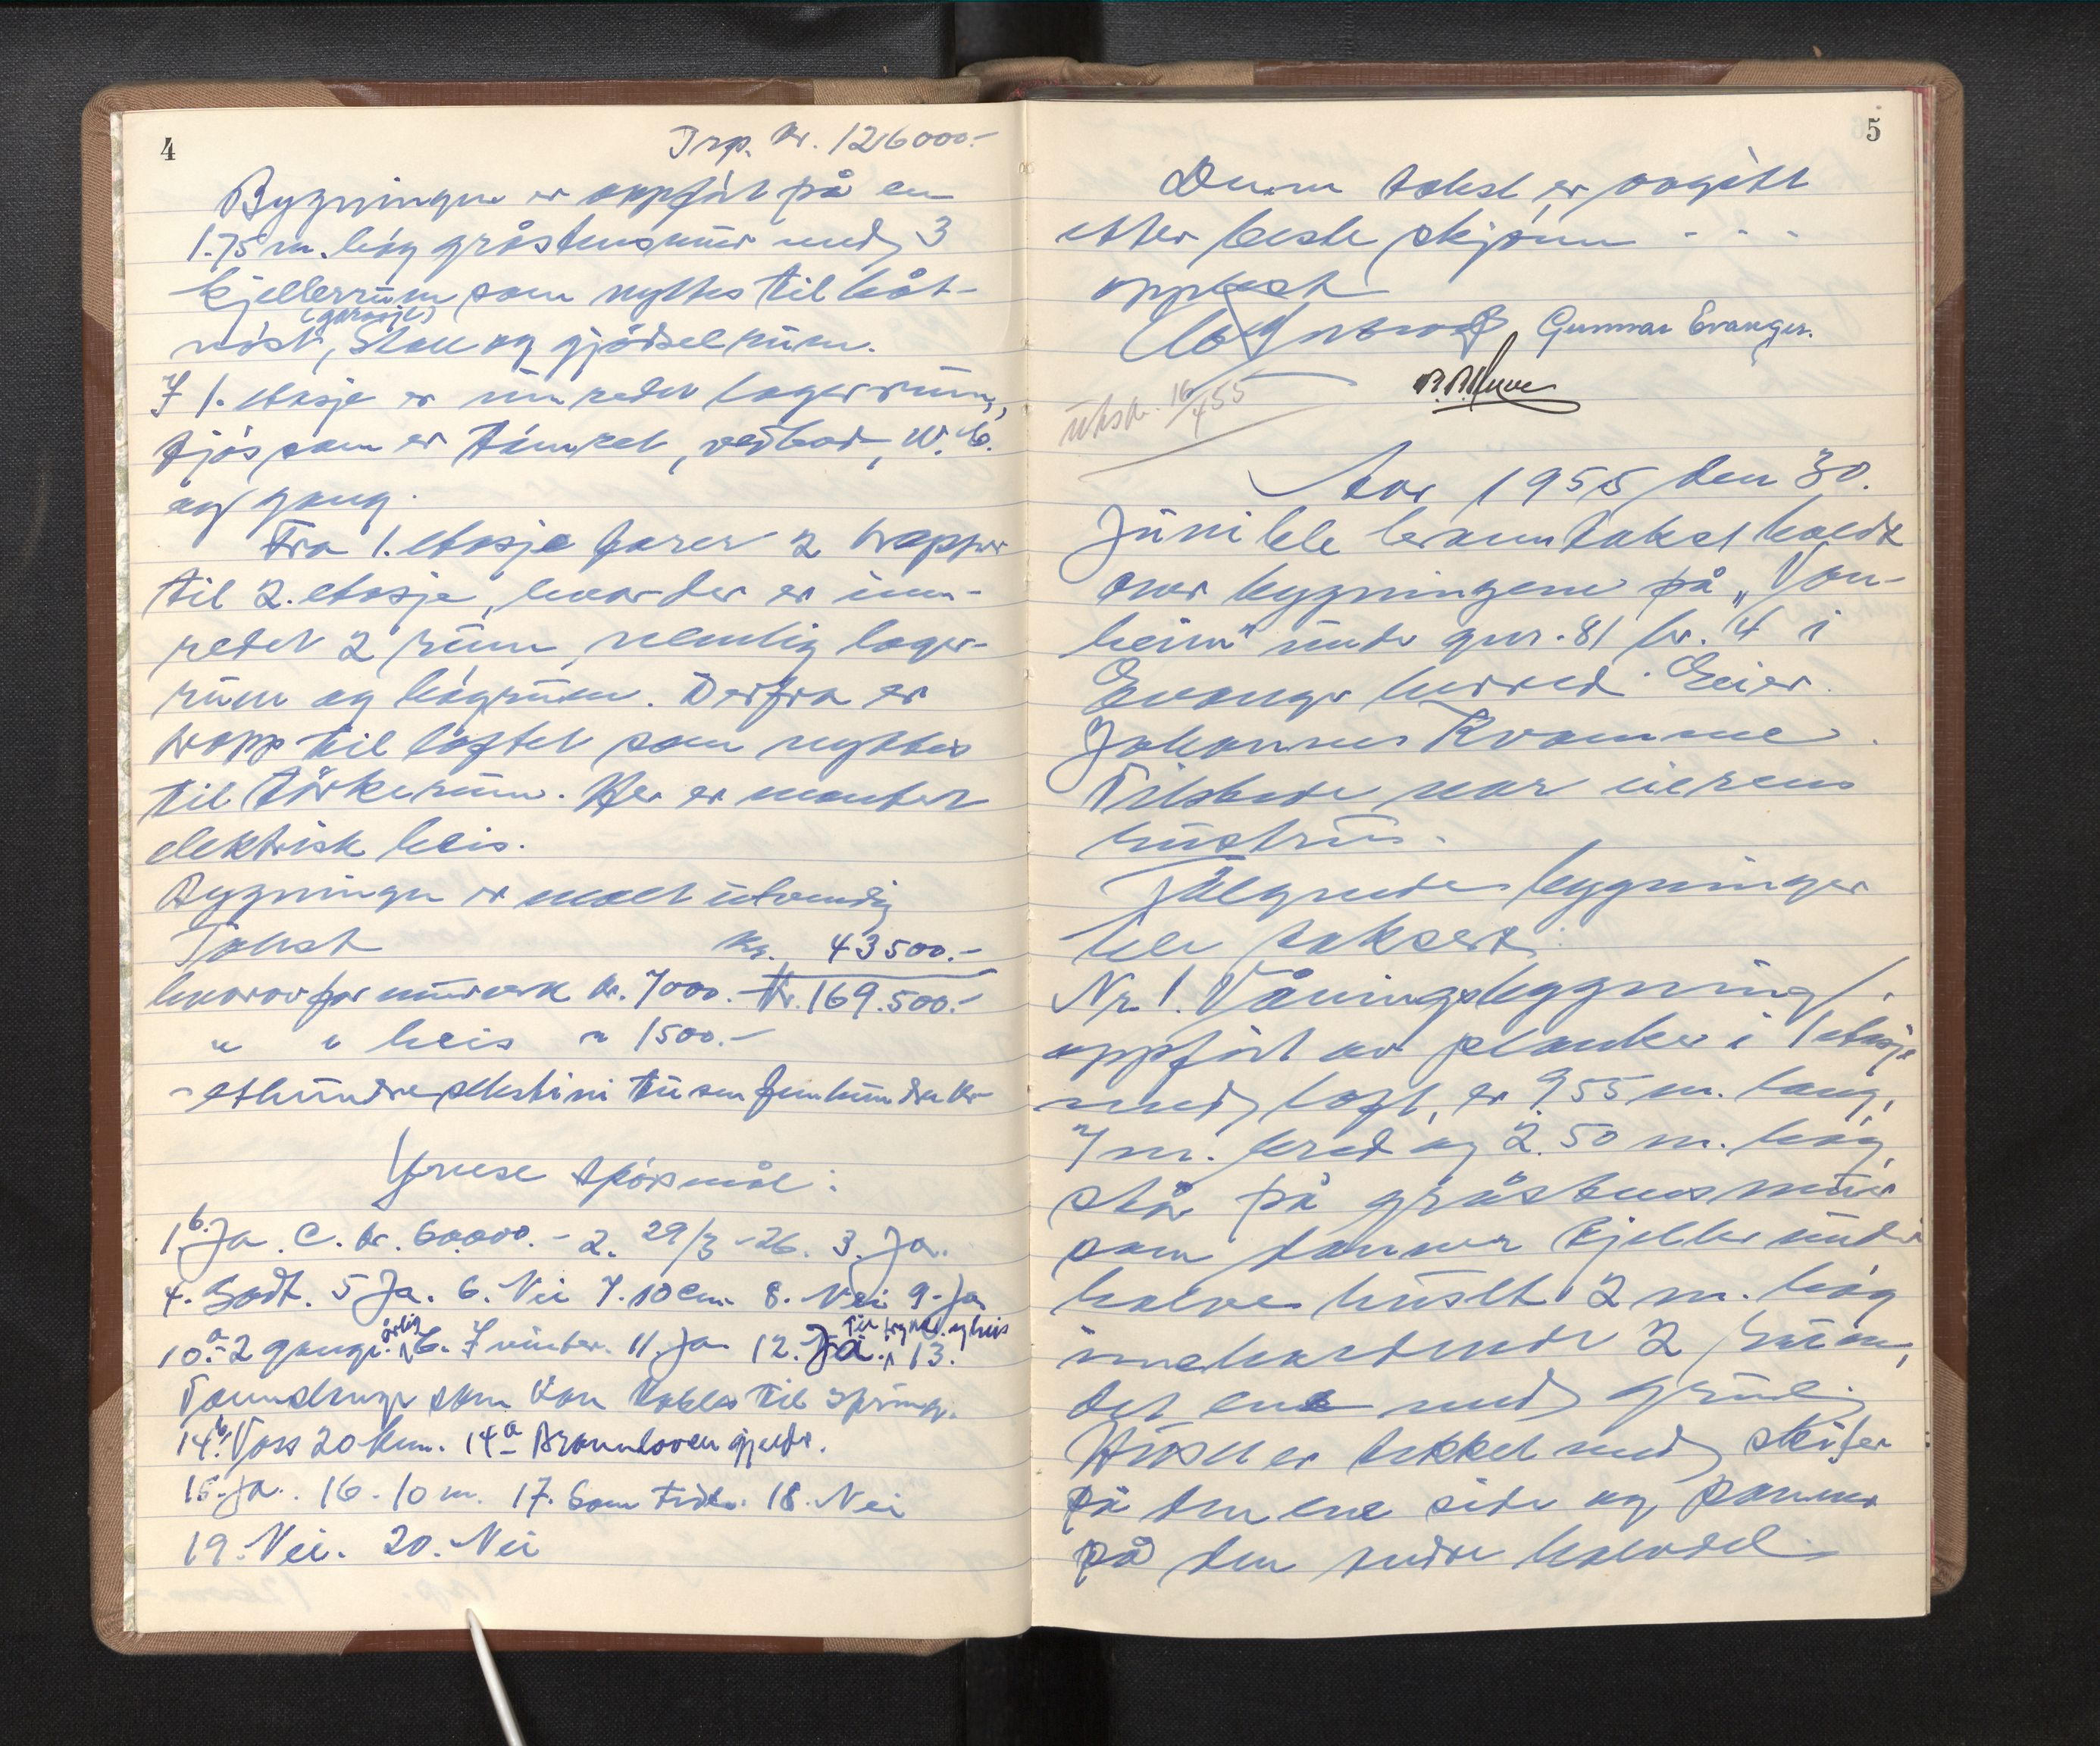 4
Trsp. kr. 126000.-
Bygningen er oppført på en
1.75 m. høg gråstensmur med 3
kjellerrum som nyttes til båt-
(garasje)
nøst, Stall og gjødselrum.
I 1. etasje er innredet lagerrum,
fjøs som er tømret, vedbod, W.C.
og gang.
Fra 1. etasje fører 2 trapper
til 2. etasje, hvor der er inn-
redet 2 rum, nemlig lager-
rum og høgrum. Derfra er
trapp til loftet som nyttes
til tørkerum. Her er montert
elektrisk heis.
Bygningen er malt utvendig
Takst kr. 43500.-
hvorav for murverk kr. 7000.- Kr. 169.500.-
" " heis " 1500.-
- etthundresekstini tusen femhundre kr -
Yruse spørsmål:
1.b. Ja. C. kr. 60.000.- 2. 29/3-26. 3. Ja.
4. Godt. 5 Ja. 6. Nei 7. 10 cm. 8. Nei 9. Ja
årlig Til lys og heis
10. a 2 gange. b. I vinter. 11. Ja 12. Ja. 13.
Vannslange som kan kobles til spring.
14.b. Voss 20 km. 14a Brannloven gjelder.
15. Ja. 16. 10 m. 17. Som før. 18. Nei
19. Nei. 20. Nei
5
Denne takst er avgitt
etter beste skjønn - - -
opplest
Gunnar Evanger.
utskr. 16/4 55
Aar 1955 den 30.
Juni ble branntakst holdt
over bygningene på „Von-
heim" under gnr. 81 br. 14 i
Evanger herred. Eier
Johannes Kvamme.
Tilstede var eierens
hustru.
Følgende bygninger
ble taksert:
Nr. 1. Våningsbygning
oppført av planker i 1 etasje
med loft, er 9.55 m. lang,
7 m. bred og 2.50 m. høg,
står på gråstensmur
som danner kjeller under
halve huset 2 m. høg
inneholdende 2 rum,
det ene med grue.
Huset er tekket med skifer
på den ene side og panner
på den andre halvdel.